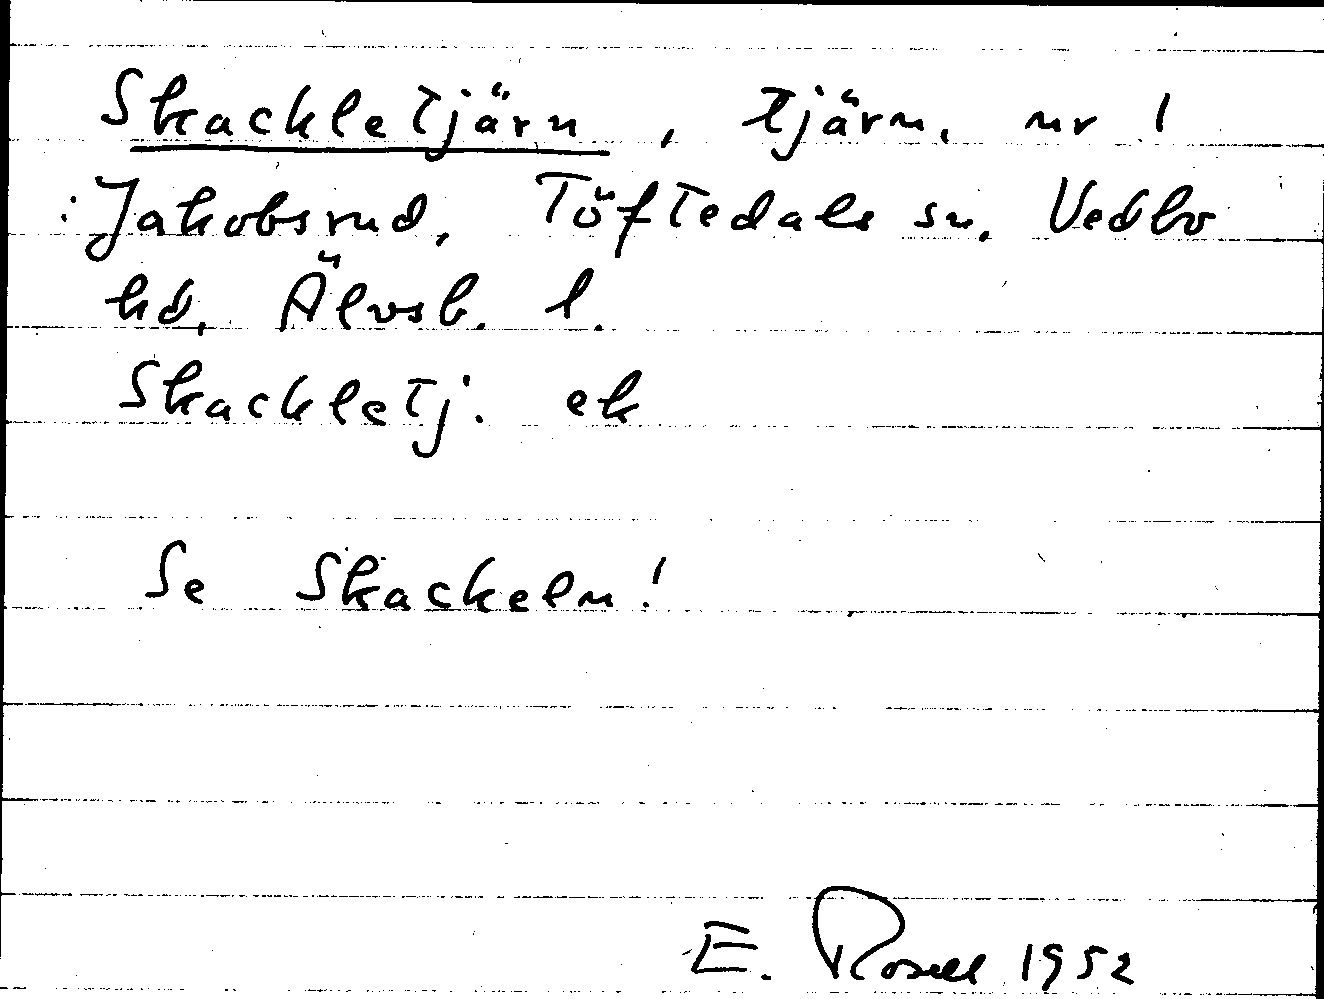 Skackletjärn, tjärn, nr 1
: Jakobsrud, Töftedals sn, Vedbo
hd, Älvsb. l.
Skackletj. ek
Se Skackeln!
E. Rosell 1952